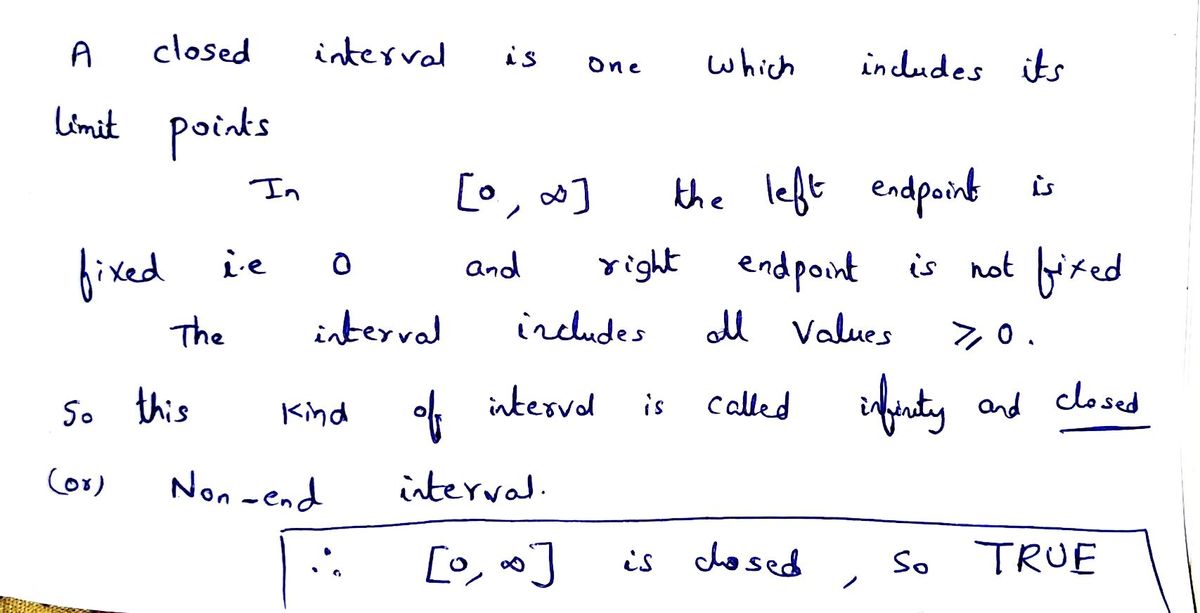 A closed interval is one which includes its
limit points
In [0, ∞] the left endpoint is
fixed i.e 0 and right endpoint is not fixed
The interval includes all values ⩾ 0.
So this kind of interval is called infinity and closed
(or) Non-end interval.
∴ [0, ∞] is closed, So TRUE